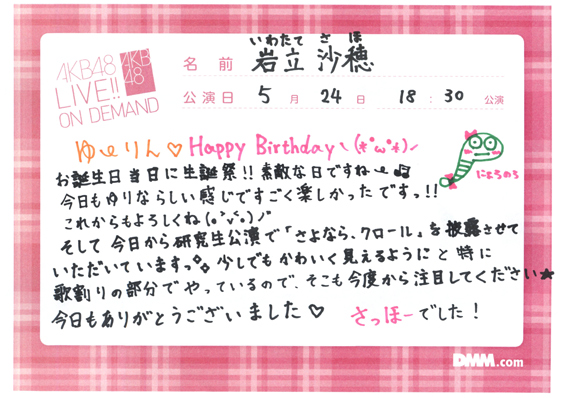 いわたて さほ
AKB48
LIVE!!
ON DEMAND
AKB
48
名前 岩立 沙穂
公演日 5月 24日 18:30 公演
ゆーりん♡Happy Birthdayヽ(*°ω°*)ノ
お誕生日当日に生誕祭!!素敵な日ですね〜♫
今日もゆりならしい感じですごく楽しかったですっ!!
これからもよろしくね(。°v°。)ノ
にょろのろ
そして今日から研究生公演で「さよなら、クロール」を披露させて
いただいていますっ。少しでもかわいく見えるようにと特に
歌割りの部分でやっているので、そこも今度から注目してください★
今日もありがとうございました♡ さっほーでした!
DMM.com